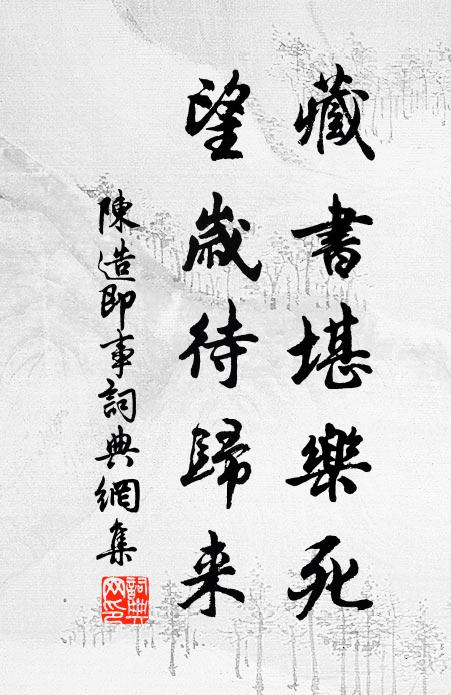 藏書堪樂死
望歲待歸来
陳造即事詞典網集
詞典网印